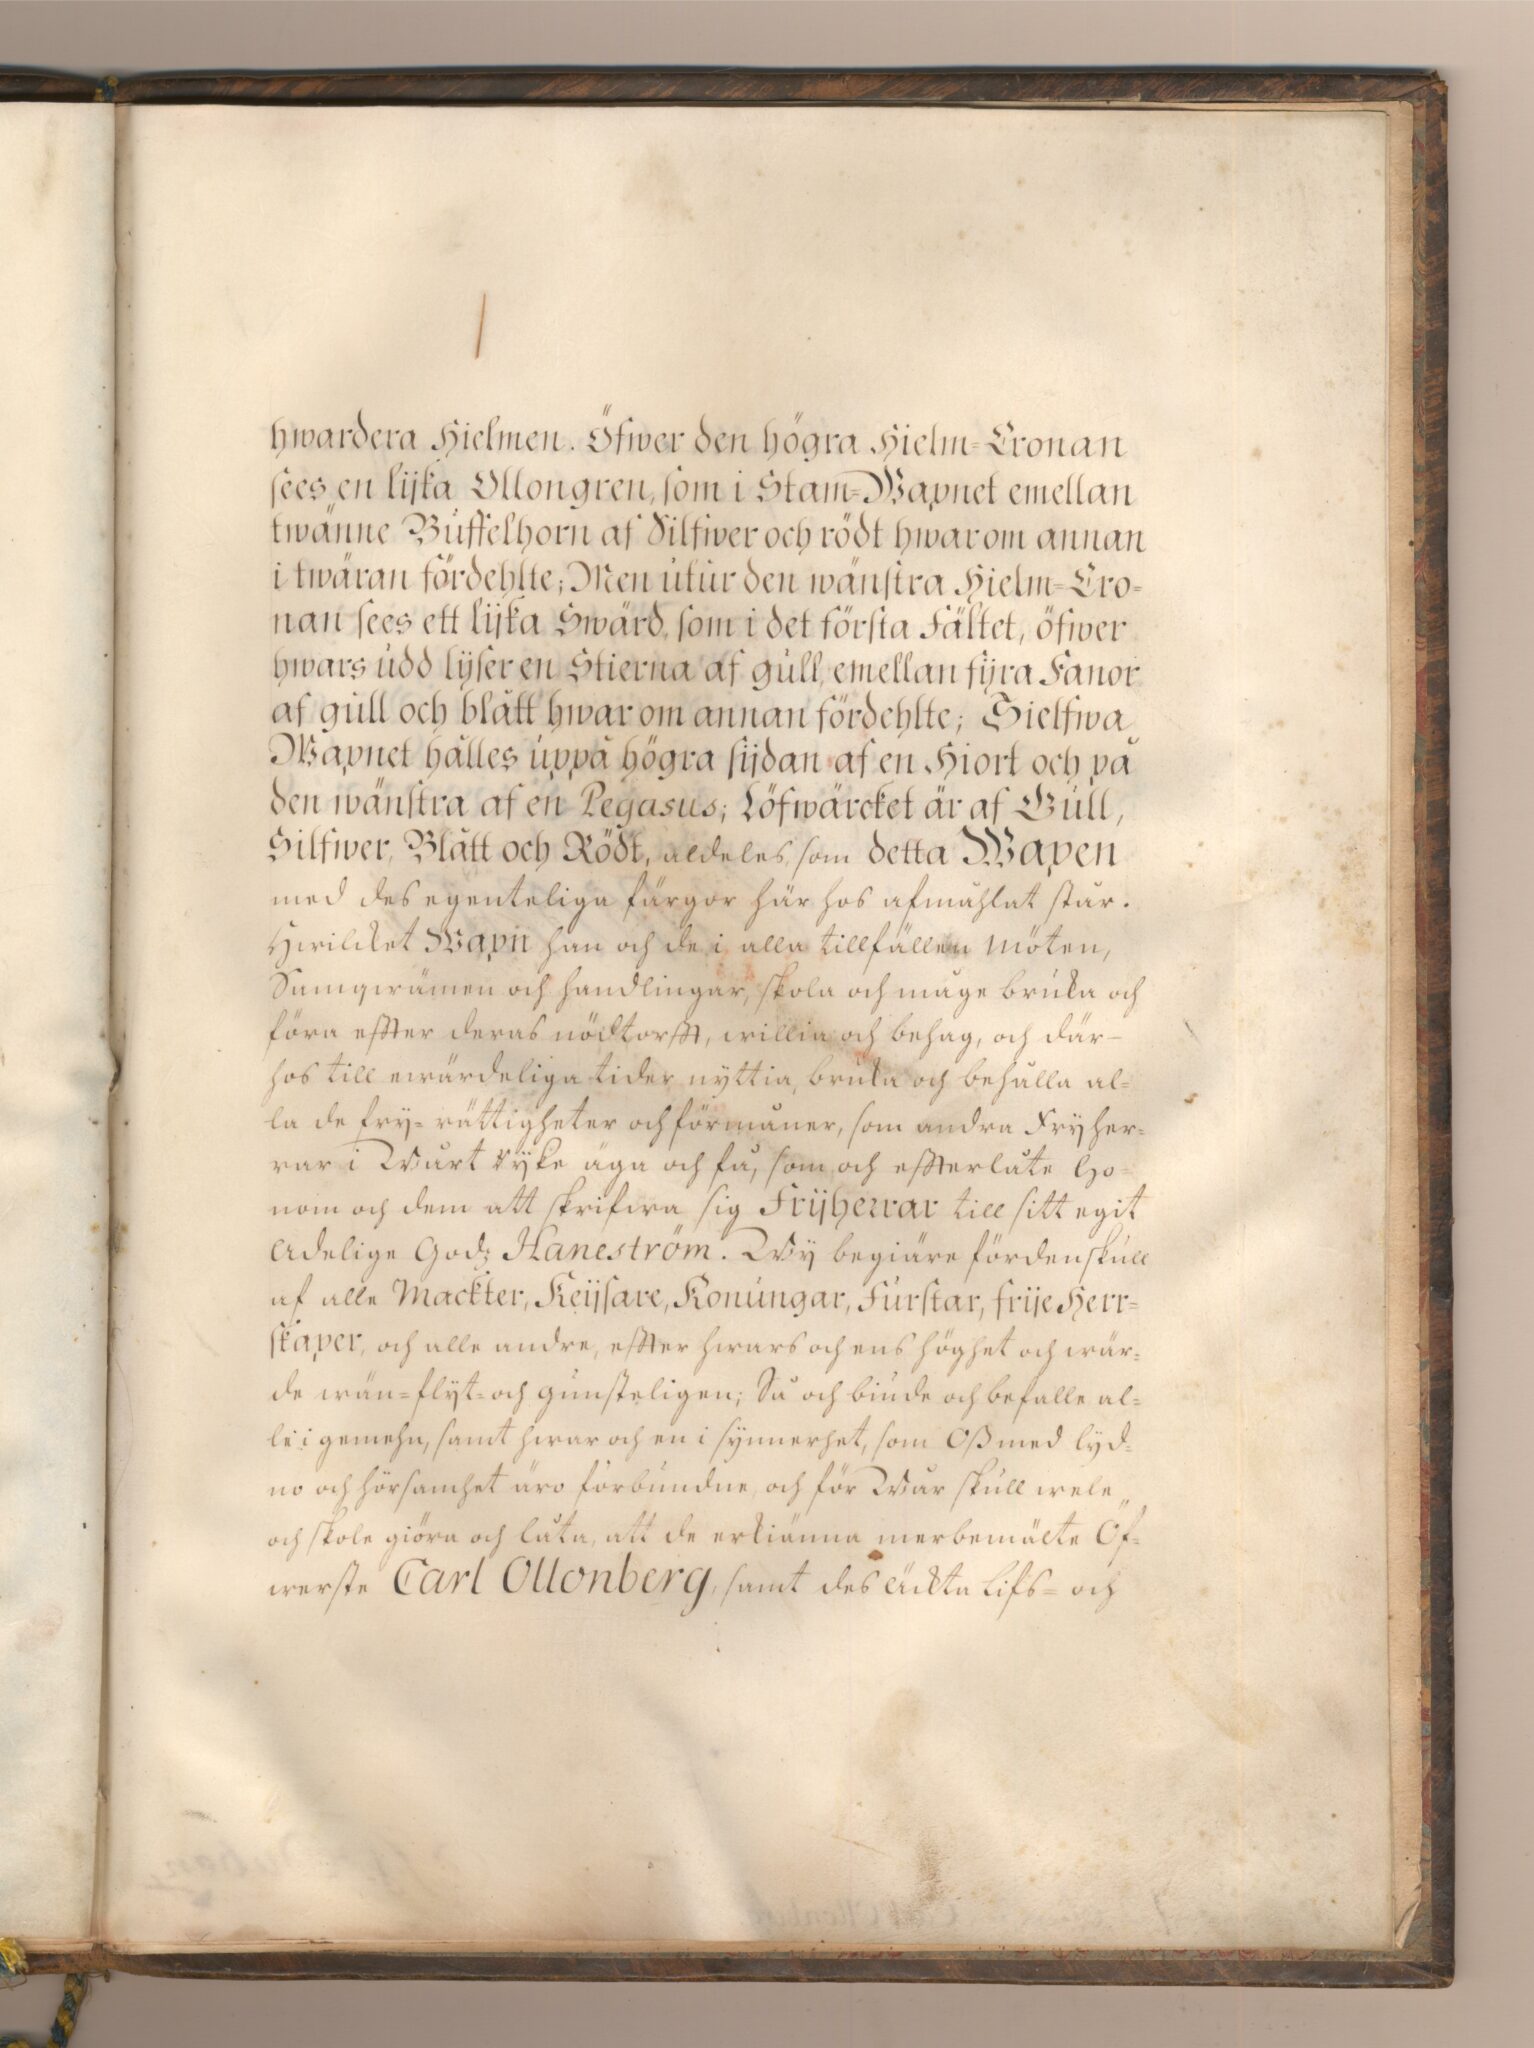 hwardera Hielmen. Öfwer den högra Hielm=Cronan
sees en lijka Ollongren, som i Stam=Wapnet emellan
twänne Buffelhorn af Silfwer och rödt hwar om annan
i twäran fördehlte; Men utur den wänstra Hielm=Cro=
nan sees ett lijka Swärd, som i det första Fältet, öfwer
hwars udd lyser en Stierna af gull, emellan fyra Fanor
af gull och blått hwar om annan fördehlte; Sielfwa
Wapnet hålles uppå högra sijdan af en Hiort och på
den wänstra af en Pegasus; Löfwärcket är af Gull,
Silfwer, Blått och Rödt, aldeles, som detta Wapen
med des egenteliga färgor här hos afmåhlat står.
Hwilcket Wapn han och de i alla tillfällen möten,
Samqwämen och handlingar, skola och måge bruka och
föra effter deras nödtorfft, willia och behag, och där=
hos till ewärdeliga tider nyttia, bruka och behålla al=
la de fry=rättigheter och förmåner, som andra Fryher=
rar i Wårt Ryke äga och få, som och effterlåte Ho=
nom och dem att skrifwa sig Frijherrar till sitt egit
Adelige Godz Haneström. Wy begiäre fördenskull
af alle Mackter, Keijsare, Konungar, Furstar, frije Herr=
skaper, och alle andre, effter hwars och ens höghet och wär=
de wän=flyt= och gunsteligen; Så och biude och befalle al=
le i gemehn, samt hwar och en i synnerhet, som Oß med lyd=
no och hörsamhet äro förbundne, och för Wår skull wele
och skole giöra och låta, att de erkiänna merbemälte Öf=
werste Carl Ollonberg, samt des Äckta Lifs= och